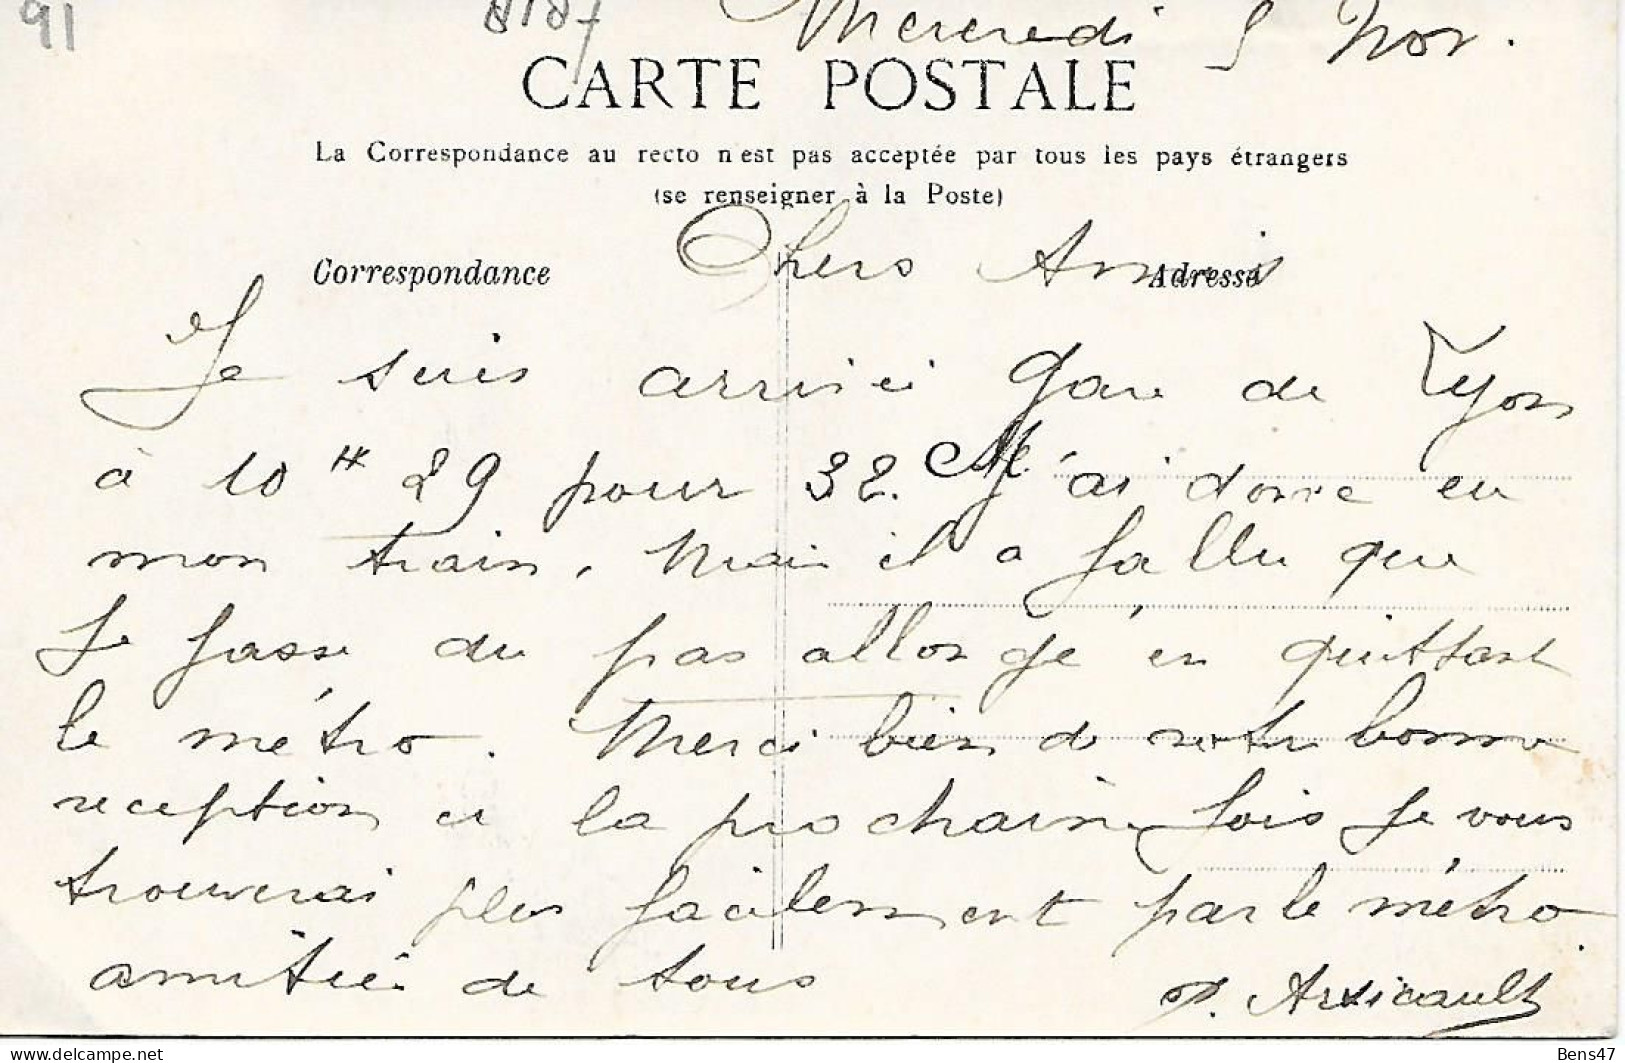 91
Mercredi 5 Nov.
CARTE POSTALE
La Correspondance au recto n'est pas acceptée par tous les pays étrangers
(se renseigner à la Poste)
Correspondance Adresse
Chers Amis
Je suis arrivé gare de Lyon
à 10 H 29 pour 32. J'ai donc eu
mon train. Mais il a fallu que
Je fasse du pas allongé en quittant
le métro. Merci bien de votre bonne
reception et la prochaine fois Je vous
trouverai plus facilement par le métro
amitiés de tous
Bens47